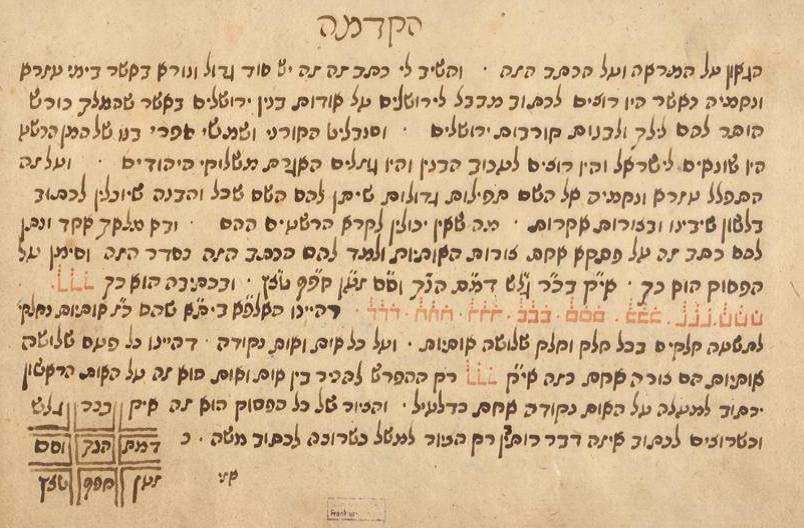 הקדמה
הגאון על המראה ועל הכתב הזה · והשיב לי כתב זה זה יש סוד גדול ונורא באשר בימי עזרא
ונחמיה כאשר היו רוצים לכתוב מבבל לירושלים על אודות בנין ירושלים באשר שהמלך כורש
הותר להם לילך ולבנות חורבות ירושלים · וסנבליט החורני ושמשי ספרי בנו של המן הרשע
היו שונאים לישראל והיו רוצים לעכוב הבנין והיו נוטלים האגרת משלוחי היהודים · ועל זה
התפלל עזרא ונחמיה אל השם תפילות גדולות שיתן להם השם שכל והבנה שיוכלין לכתוב
בלשון שיבינו ובצורות אחרות · מה שאין יכולין לקרא הרשעים ההם · ובא מלאך אחד ונתן
להם כתב זה על פתקא אחת צורות האותיות ולמד להם הכתב הזה כסדר הזה וסימן על
הפסוק הוא כך · אי״ק בכ״ר גל״ש דמ״ת הנ״ך וס״ם זע״ן חפ״ף טצ״ץ · ובכתיבה הוא כך
דהיינו האלפ״א בית״א שהם כ״ז אותיות נחלק
לתשעה חלקים בכל חלק וחלק שלושה אותיות · ועל כל אות ואות נקודה · דהיינו כל פעם שלושה
אותיות הם צורה אחת כזה אי״ק רק ההפרש להכיר בין אות ואות הוא זה על האות הראשון
יכתוב למעלה על האות נקודה אחת כדלעיל · והציור של כל הפסוק הוא זה איק בכר גלש
וכשרוצים לכתוב איזה דבר רק הציור למשל כשרוצה לכתוב משה · כ דמת הנך וסם
זען חפף טצץ
אני